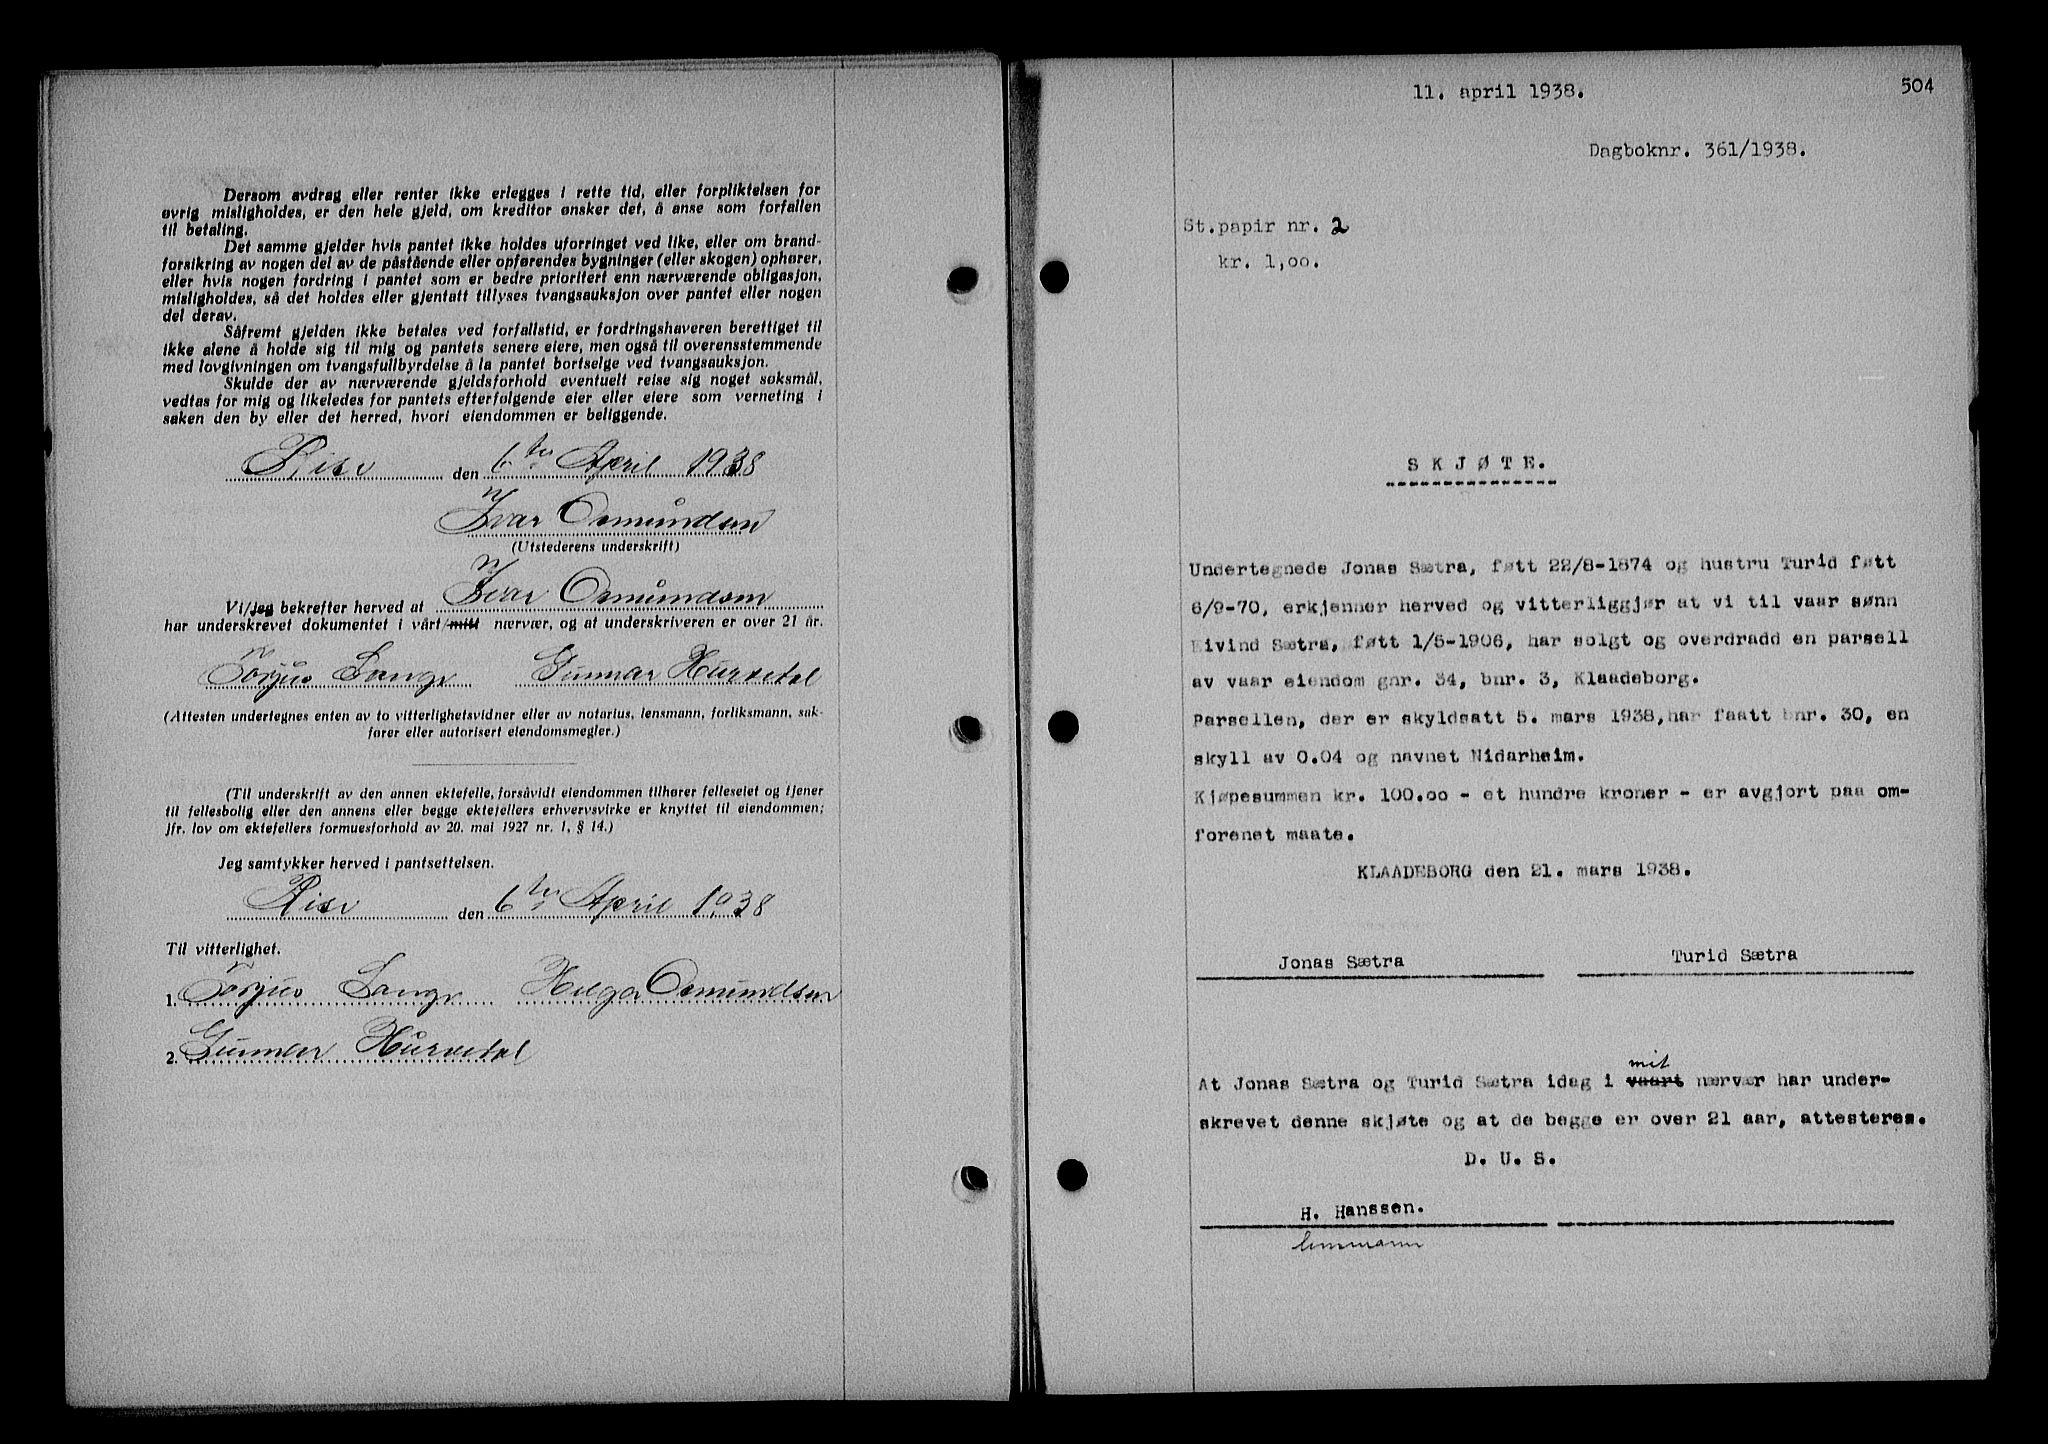 Dersom avdrag eller renter ikke erlegges i rette tid, eller forpliktelsen for
øvrig misligholdes, er den hele gjeld, om kreditor ønsker det, å anse som forfallen
til betaling.
Det samme gjelder hvis pantet ikke holdes uforringet ved like, eller om brand-
forsikring av nogen del av de påstående eller opførendes bygninger (eller skogen) ophører,
eller hvis nogen fordring i pantet som er bedre prioritert enn nærværende obligasjon,
misligholdes, så det holdes eller gjentatt tillyses tvangsauksjon over pantet eller nogen
del derav.
Såfremt gjelden ikke betales ved forfallstid, er fordringshaveren berettiget til
ikke alene å holde sig til mig og pantets senere eiere, men også til overensstemmende
med lovgivningen om tvangsfullbyrdelse å la pantet bortselge ved tvangsauksjon.
Skulde der av nærværende gjeldsforhold eventuelt reise sig noget søksmål,
vedtas for mig og likeledes for pantets efterfølgende eier eller eiere som verneting i
saken den by eller det herred, hvori eiendommen er beliggende.
Risør den 6te April 1938
Ivar Osmundsen
(Utstederens underskrift)
Vi/jeg bekrefter herved at Ivar Osmundsen
har underskrevet dokumentet i vårt/mitt nærvær, og at underskriveren er over 21 år.
Torjus Lange Gunnar Hursedal
(Attesten undertegnes enten av to vitterlighetsvidner eller av notarius, lensmann, forliksmann, sak-
fører eller autorisert eiendomsmegler.)
(Til underskrift av den annen ektefelle, forsåvidt eiendommen tilhører felleseiet og tjener
til fellesbolig eller den annens eller begge ektefellers erhvervsvirke er knyttet til eiendommen;
jfr. lov om ektefellers formuesforhold av 20. mai 1927 nr. 1, § 14.)
Jeg samtykker herved i pantsettelsen.
Risør den 6te April 1938
Til vitterlighet.
1. Torjus Lange Helga Osmundsen
2. Gunnar Hursedal
11. april 1938.
504
Dagboknr. 361/1938.
St.papir nr. 2
kr. 1,00.
SKJØTE.
Undertegnede Jonas Sætra, født 22/8-1874 og hustru Turid født
6/9-70, erkjenner herved og vitterliggjør at vi til vaar sønn
Eivind Sætra, født 1/5-1906, har solgt og overdradd en parsell
av vaar eiendom gnr. 34, bnr. 3, Klaadeborg.
Parsellen, der er skyldsatt 5. mars 1938, har faatt bnr. 30, en
skyll av 0.04 og navnet Nidarheim.
Kjøpesummen kr. 100.00 - et hundre kroner - er avgjort paa om-
forenet maate.
KLAADEBORG den 21. mars 1938.
Jonas Sætra Turid Sætra
mit
At Jonas Sætra og Turid Sætra idag i vaart nærvær har under-
skrevet denne skjøte og at de begge er over 21 aar, attesteres.
D. U. S.
H. Hanssen.
lensmann